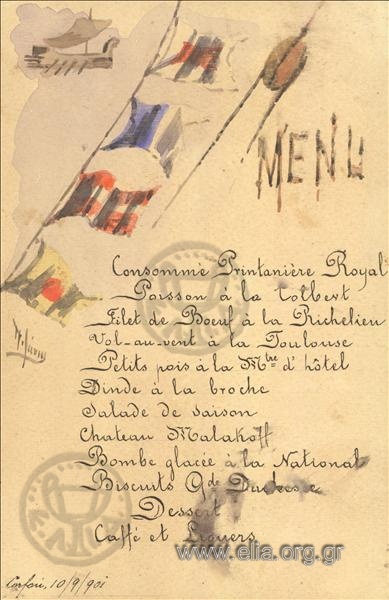 MENU
Consommé Printanière Royal
Poisson à la Colbert
Filet de Boeuf à la Richelieu
Vol-au-vent à la Toulouse
Petits pois à la Mtre d'hôtel
Dinde à la broche
Salade de saison
Chateau Malakoff
Bombe glacée à la National
Biscuits Gde Duchesse
Dessert
Caffé et Liquers
www.elia.org.gr
Corfou, 10/9/901